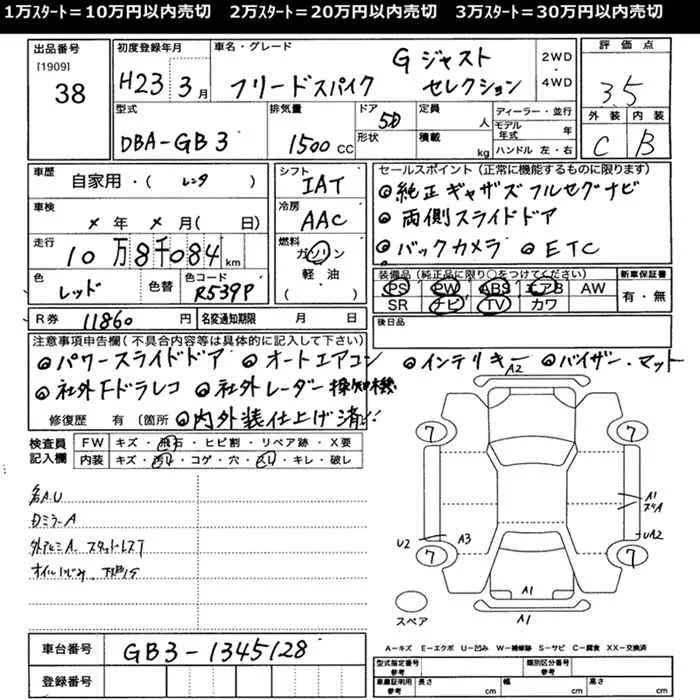 1万ｽﾀｰﾄ＝10万円以内売切　2万ｽﾀｰﾄ＝20万円以内売切　3万ｽﾀｰﾄ＝30万円以内売切
出品番号
[1909]
38
初度登録年月
H23年3月
車名・グレード
フリードスパイク
G ジャスト
セレクション
2WD
・
4WD
評価点
3.5
外装 内装
C B
型式
DBA-GB3
排気量
1500 CC
ドア
5D
形状
定員
人
積載
kg
ディーラー・並行
モデル年式 年
ハンドル 左・右
車歴
自家用・( レンタ )
車検
× 年 × 月( 日)
走行
10万8千084 km
色
レッド
色替
色コード
R539P
シフト
IAT
冷房
AAC
燃料
ガソリン
軽油
( )
セールスポイント(正常に機能するものに限ります)
純正ギャザズフルセグナビ
両側スライドドア
バックカメラ ETC
装備品(純正品に限り○をつけてください)
PS PW ABS エアB AW
SR ナビ TV カワ
新車保証書
有・無
R券 11860 円
名変通知期限 月 日
後日品
注意事項申告欄(不具合内容等は具体的に記入して下さい)
パワースライドドア オートエアコン インテリキー バイザー・マット
社外ドラレコ 社外レーダー探知機
修復歴 有 (箇所
内外装仕上げ済!!
検査員記入欄
FW キズ・飛石・ヒビ割・リペア跡・X要
内装 キズ・汚れ・コゲ・穴・スレ・キレ・破レ
DミラーA
外アルミA
A2
7
7
7
7
A1
U2
A3
UA2
A1
A1
スペア
A－キズ E－エクボ U－凹み W－補修跡 S－サビ C－腐食 XX－交換済
車台番号
GB3-1345128
登録番号
型式指定番号
参考
類別区分番号
参考
車庫証明用
参考
長さ cm
幅 cm
高さ cm